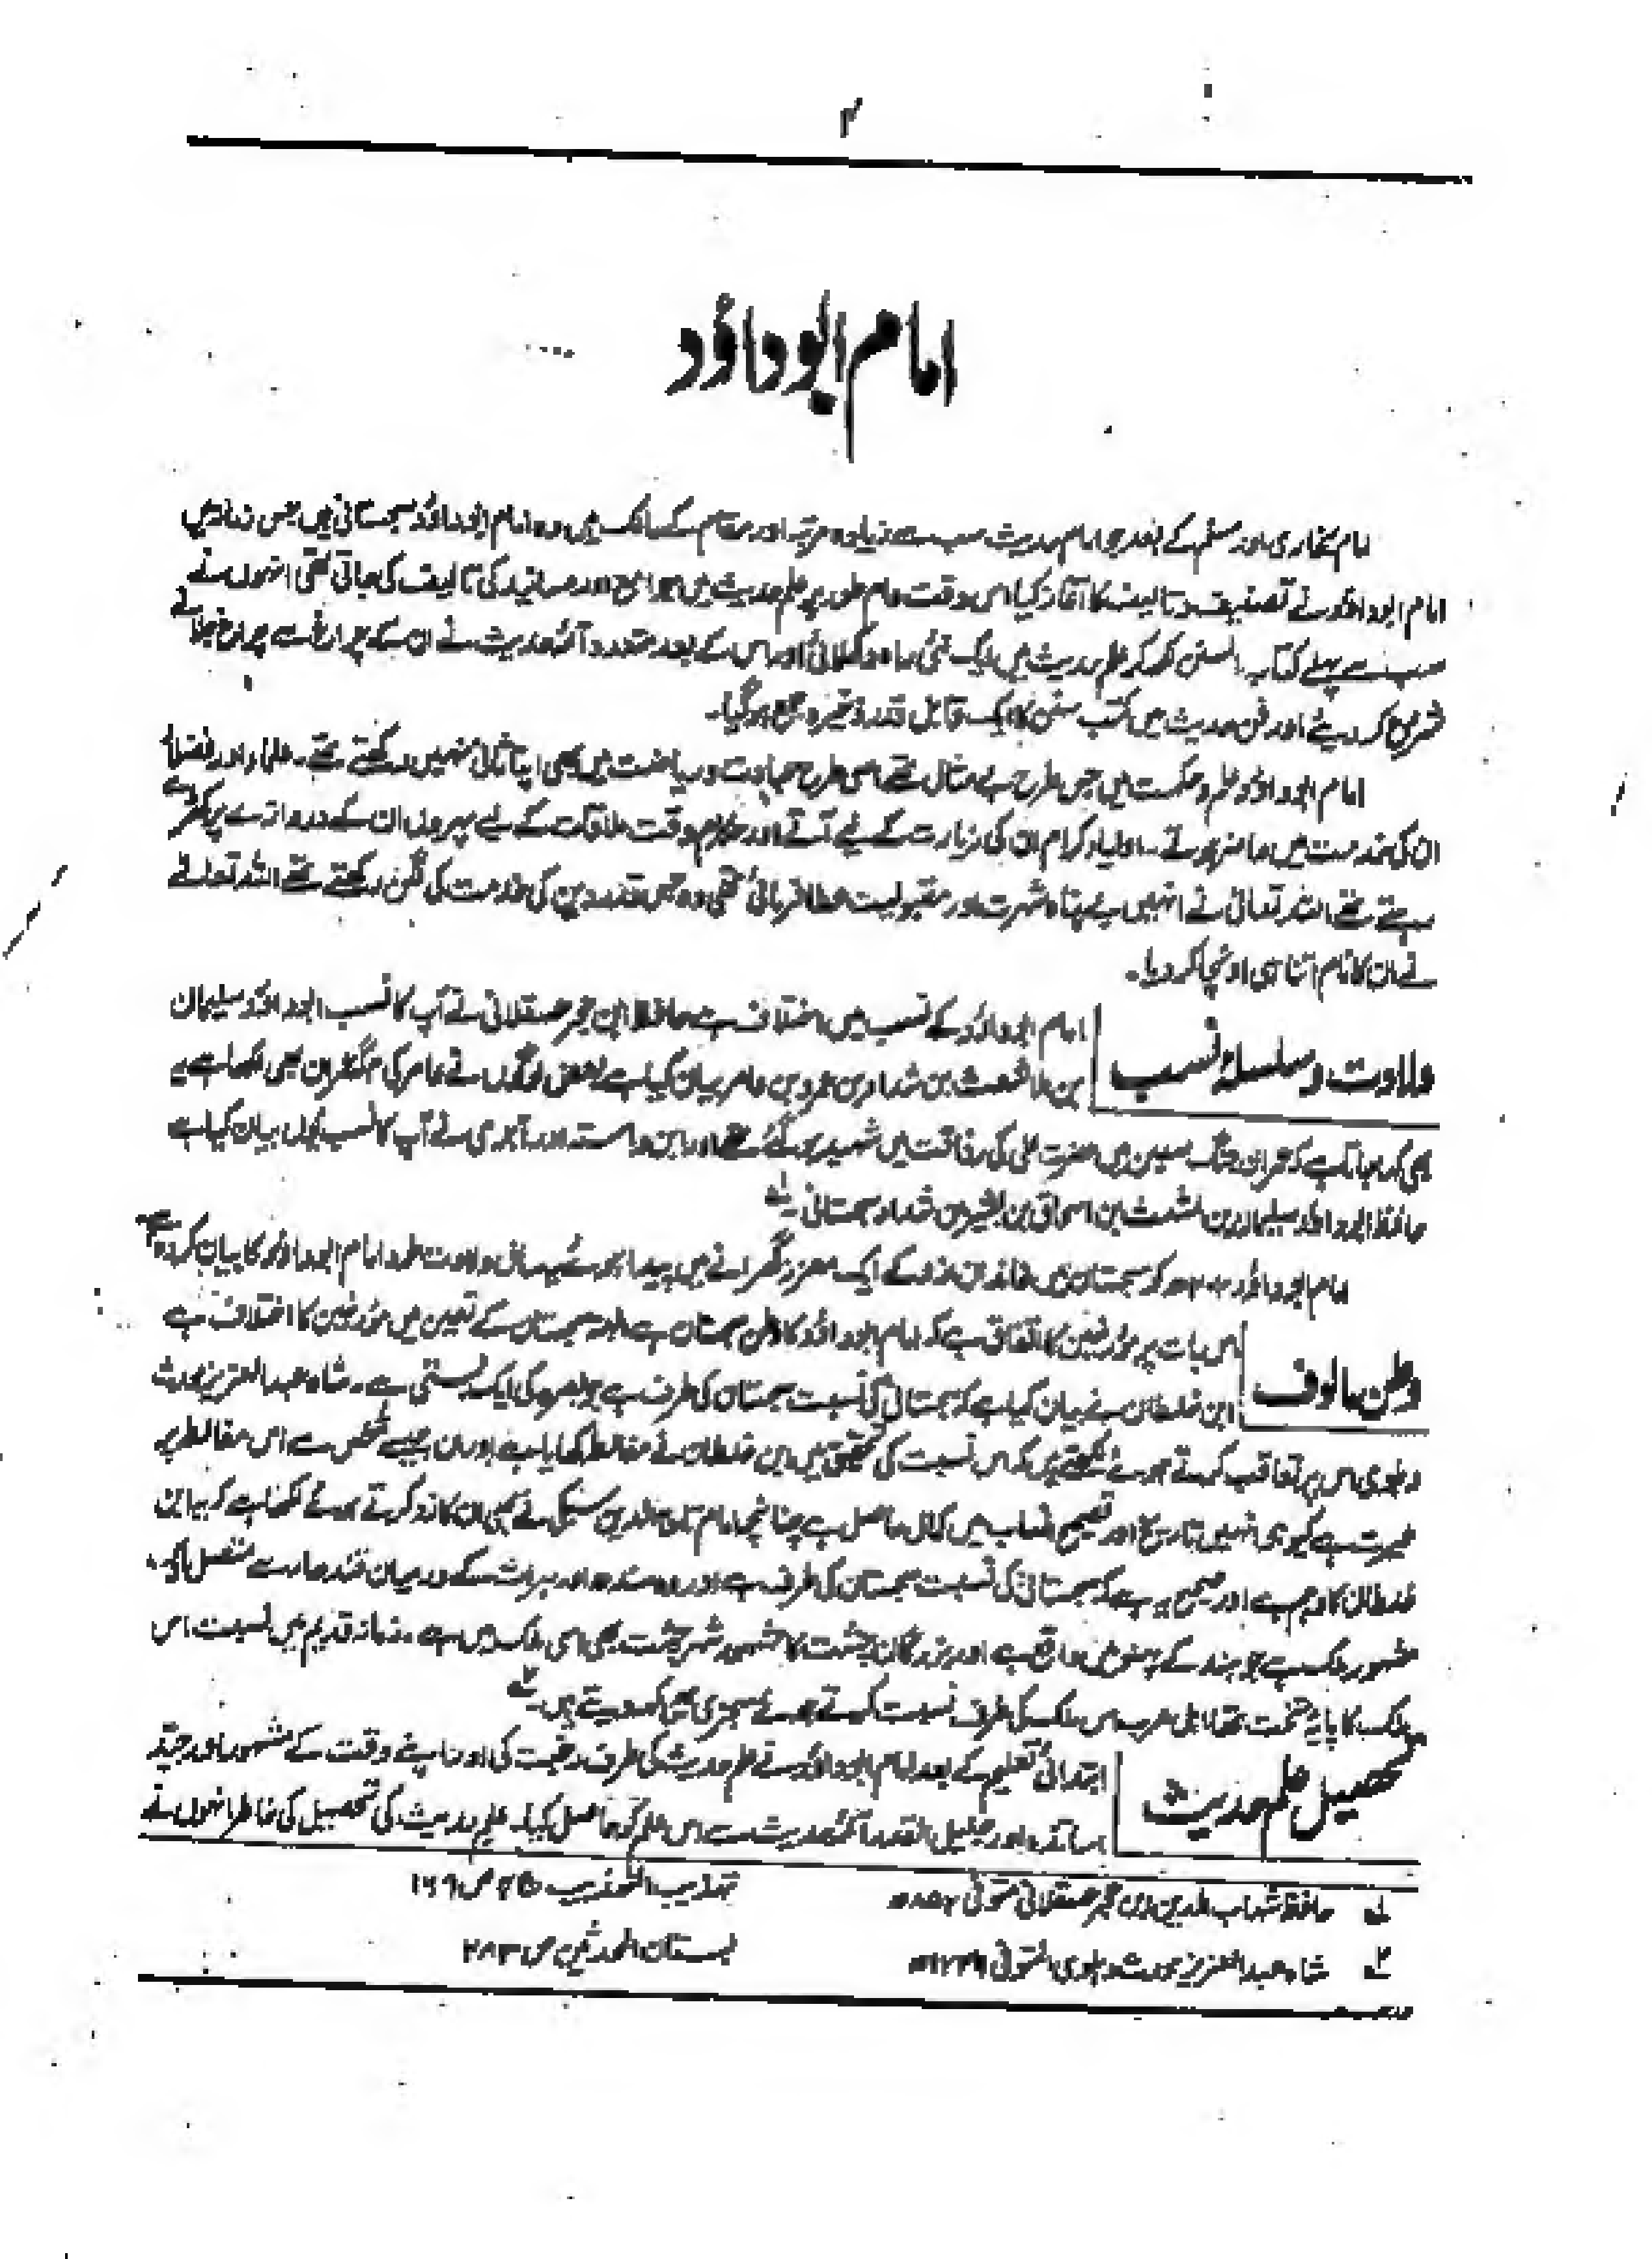 ۴
امام ابوداؤد
امام بخاری اور مسلم کے بعد جو امام حدیث سب سے زیادہ مرتبہ اور مقام کے مالک ہیں وہ امام ابوداؤد سجستانی ہیں جس زمانہ میں
امام ابوداؤد نے تصنیف و تالیف کا آغاز کیا اس وقت عام طور پر علم حدیث میں جوامع اور مسانید کی تالیف کی جاتی تھی انہوں نے
سب سے پہلے کتاب السنن لکھ کر علم حدیث میں ایک نئی راہ دکھلائی اور اس کے بعد متعدد آئمہ حدیث نے ان کے چراغ سے چراغ جلانے
شروع کر دیئے اور فن حدیث میں کتب سنن کا ایک قابل قدر ذخیرہ جمع ہو گیا۔
امام ابوداؤد علم و حکمت میں جس طرح بے مثال تھے اسی طرح عبادت و ریاضت میں بھی اپنا ثانی نہیں رکھتے تھے۔ علماء اور فضلاء
ان کی خدمت میں حاضر ہوتے۔ اولیاء کرام ان کی زیارت کے لیے آتے اور حکام وقت ملاقات کے لیے پہروں ان کے دروازے پر کھڑے
رہتے تھے اللہ تعالیٰ نے انہیں بے پناہ شہرت اور مقبولیت عطا فرمائی تھی وہ جس قدر دین کی خدمت کی لگن رکھتے تھے اللہ تعالے
نے ان کا نام اتنا ہی اونچا کر دیا۔
ولادت و سلسلۂ نسب
امام ابوداؤد کے نسب میں اختلاف ہے حافظ ابن حجر عسقلانی نے آپ کا نسب ابوداؤد سلیمان
بن الاشعث بن شداد بن عمرو بن عامر بیان کیا ہے بعض لوگوں نے عامر کی جگہ عمران بھی لکھا ہے یہ
بھی کہا جاتا ہے کہ عمران جنگ صفین میں حضرت علی کی رفاقت میں شہید ہو گئے تھے اور ابن داسہ اور آجری نے آپ کا نسب یوں بیان کیا ہے
حافظ ابوداؤد سلیمان بن اشعث بن اسحاق بن بشیر بن شداد سجستانی۔ ۱؎
امام ابوداؤد ۲۰۲ھ کو سجستان میں خاندان ازد کے ایک معزز گھرانے میں پیدا ہوئے یہ سال ولادت خود امام ابوداؤد کا بیان کردہ ہے۔
وطن مالوف
اس بات پر مؤرخین کا اتفاق ہے کہ امام ابوداؤد کا وطن سجستان ہے البتہ سجستان کے تعین میں مؤرخین کا اختلاف ہے
ابن خلکان نے بیان کیا ہے کہ سجستانی کی نسبت سجستان کی طرف ہے جو بصرہ کی ایک بستی ہے۔ شاہ عبدالعزیز محدث
دہلوی اس پر تعاقب کرتے ہوئے لکھتے ہیں کہ اس نسبت کی تحقیق میں ابن خلکان نے مغالطہ کھایا ہے اور ان جیسے شخص سے اس مغالطہ پر
حیرت ہے کیونکہ انہیں تاریخ اور تصحیح انساب میں کمال حاصل ہے چنانچہ امام تاج الدین سبکی نے بھی ان کا رد کرتے ہوئے لکھا ہے کہ یہ ابن
خلکان کا وہم ہے اور صحیح یہ ہے کہ سجستانی کی نسبت سجستان کی طرف ہے اور وہ سندھ اور ہرات کے درمیان قندھار سے متصل ایک
مشہور ملک ہے جو ہند کے پہلو میں واقع ہے اور بزرگان چشت کا مشہور شہر چشت بھی اسی ملک میں ہے۔ زمانہ قدیم میں بست اس
ملک کا پایۂ تخت تھا اہل عرب اس ملک کی طرف نسبت کرتے ہوئے سجزی بھی کہہ دیتے ہیں۔ ۲؎
تحصیل علم حدیث
ابتدائی تعلیم کے بعد امام ابوداؤد نے علم حدیث کی طرف رغبت کی اور اپنے وقت کے مشہور اور جید
اساتذہ اور جلیل القدر آئمہ حدیث سے اس علم کو حاصل کیا۔ علم حدیث کی تحصیل کی خاطر انہوں نے
۱؎ حافظ شہاب الدین ابن حجر عسقلانی متوفی ۸۵۲ھ تہذیب التہذیب ج ۴ ص ۱۶۹
۲؎ شاہ عبدالعزیز محدث دہلوی المتوفی ۱۲۳۹ھ بستان المحدثین ص ۲۸۳